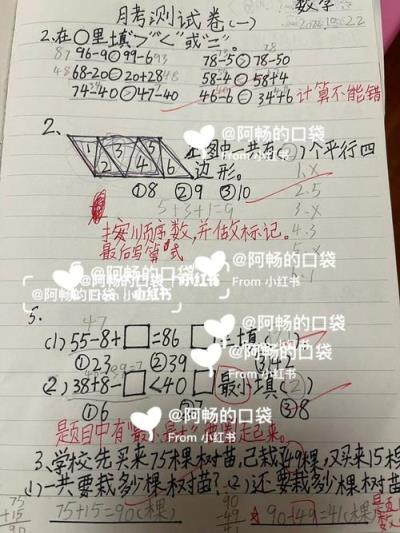 数学
月考测试卷(一)
2026.1.22
2.在○里填">""<"或"="。
87 96-9○99-6 93 78-5○78-50
48 68-20○20+28 48 58-4○58+4
74-40○47-40 46-6○34+6
计算不能错
2、
1 2 3 4 5 6
左图中一共有( )个平行四
边形。
①8 ②9 ③10
5+3+1=9
按顺序数,并做标记。
最后写算式
1.x
2.5
3.x
4.3
@阿畅的口袋
From 小红书
@阿畅的口袋
From 小红书
@阿畅的口袋
From 小红书
@阿畅的口袋
From 小红书
5.
47
(1)55-8+□=86 □里填( )
①23 ②39 ③42
(2)38+8-□<40 □最小填(2)
①6 ②7 ③8
@阿畅的口袋
From 小红书
题目中有 起来。
3、学校先买来75棵树苗,已栽49棵,又买来15棵
(1)一共要栽多少棵树苗?(2)还要栽多少棵树苗
75
+15
90
75+15=90(棵)
90
-49
41
90-49=41(棵)